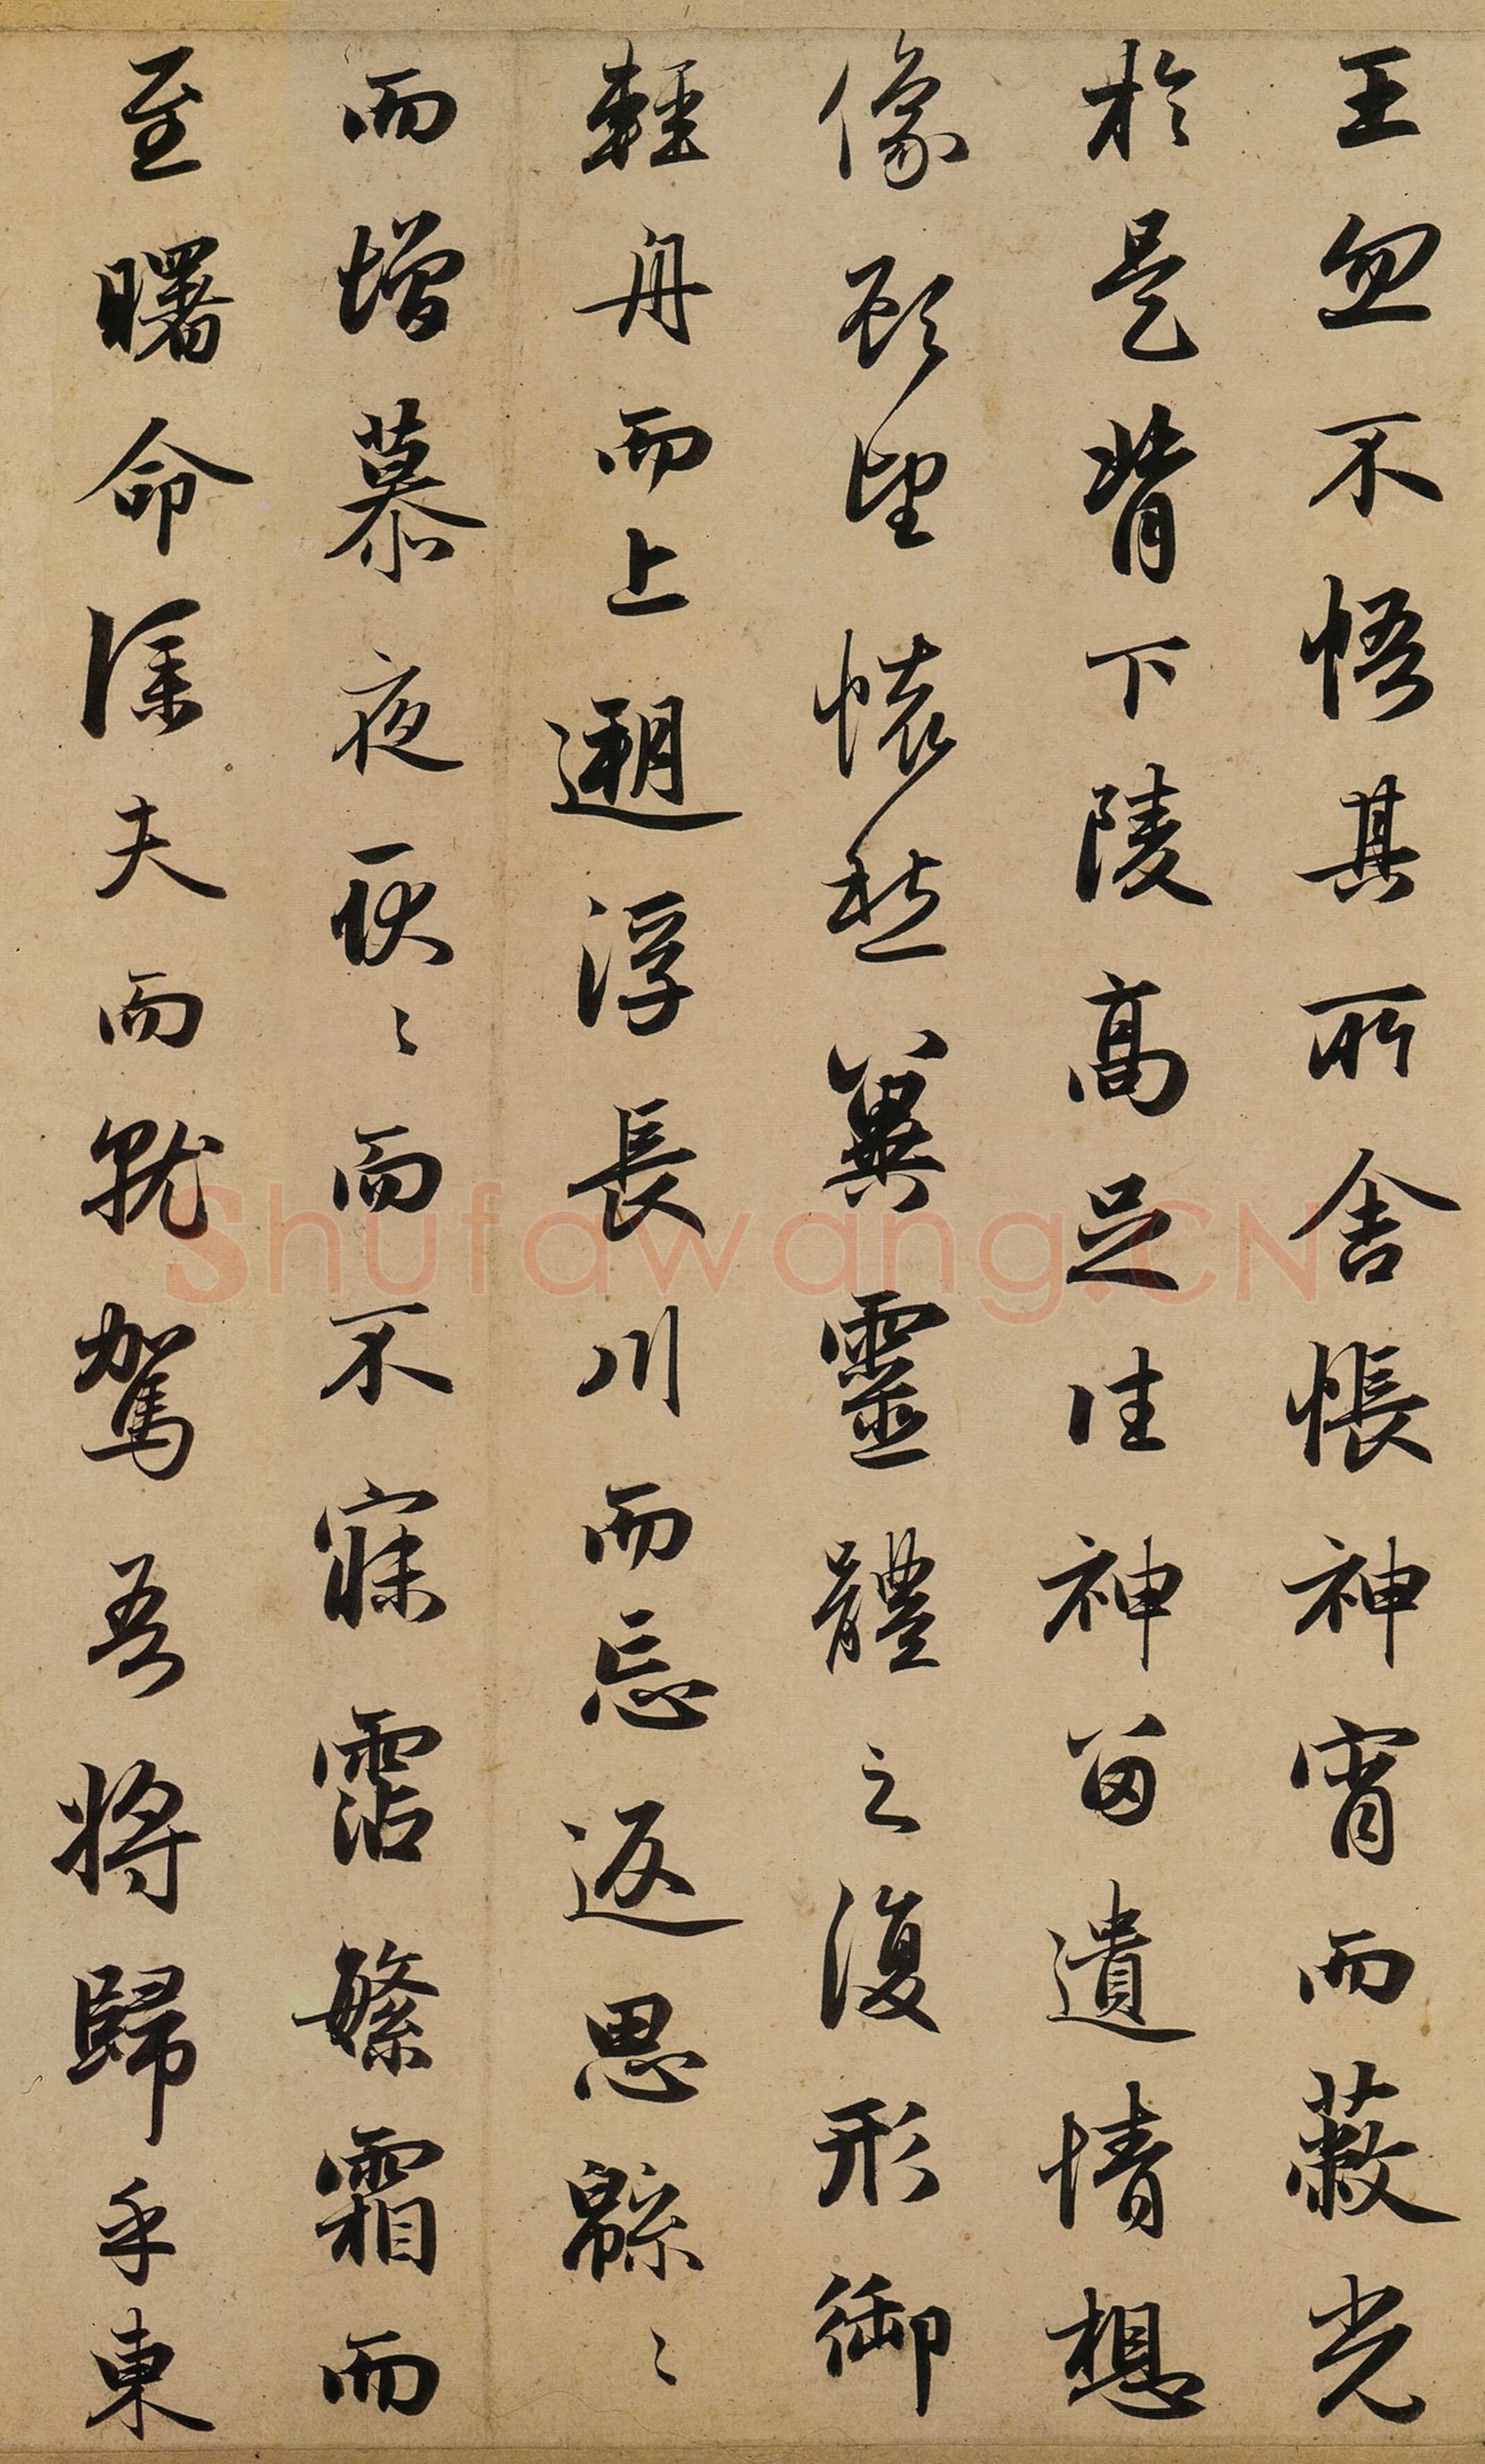 王忽不悟其所舍悵神宵而蔽光
於是背下陵高足往神留遺情想
像顧望懷愁冀靈體之復形御
輕舟而上遡浮長川而忘返思緜〻
而增慕夜耿〻而不寐霑繁霜而
至曙命僕夫而就駕吾將歸乎東
Shufawang.CN